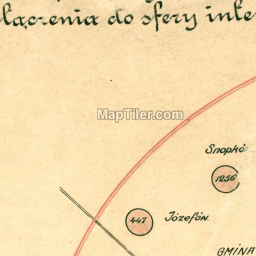 łączenia do sfery inte
MapTiler.com
Snopkó
1256
447
Józefów
GMINA